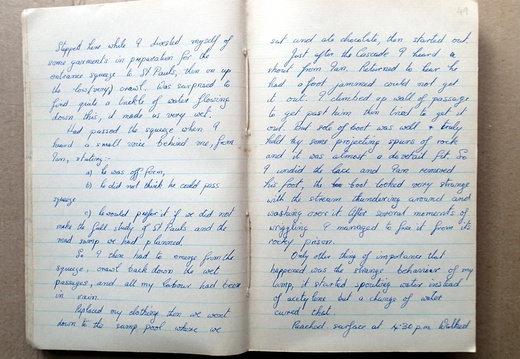 Stopped here while I divested myself of
some garments in preparation for the
entrance squeeze to St Pauls, then on up
the low (very) crawl. Was surprised to
find quite a trickle of water flowing
down this, it made us very wet.
Had passed the squeeze when I
heard a small voice behind me, from
Ian, stating:-
a) he was off form,
b) he did not think he could pass
squeeze
c) he would prefer it if we did not
make the full study of St Pauls and the
mud sump we had planned.
So I then had to emerge from the
squeeze, crawl back down the wet
passages, and all my labour had been
in vain.
Replaced my clothing then we went
down to the sump pool where we
49
sat and ate chocolate, then started out.
Just after the Cascade I heard a
shout from Ian. Returned to hear he
had a foot jammed could not get
it out. I climbed up wall of passage
to get past him then tried to get it
out. But sole of boot was well & truly
held by some projecting spurs of rock
and it was almost a dovetail fit. So
I undid the lace and Ian removed
his foot, the boot looked very strange
with the stream thundering around and
washing over it. After several moments of
wriggling I managed to free it from its
rocky prison.
Only other thing of importance that
happened was the strange behaviour of my
lamp, it started spouting water instead
of acetylene but a change of water
cured that.
Reached surface at 4:30 p.m. Walked